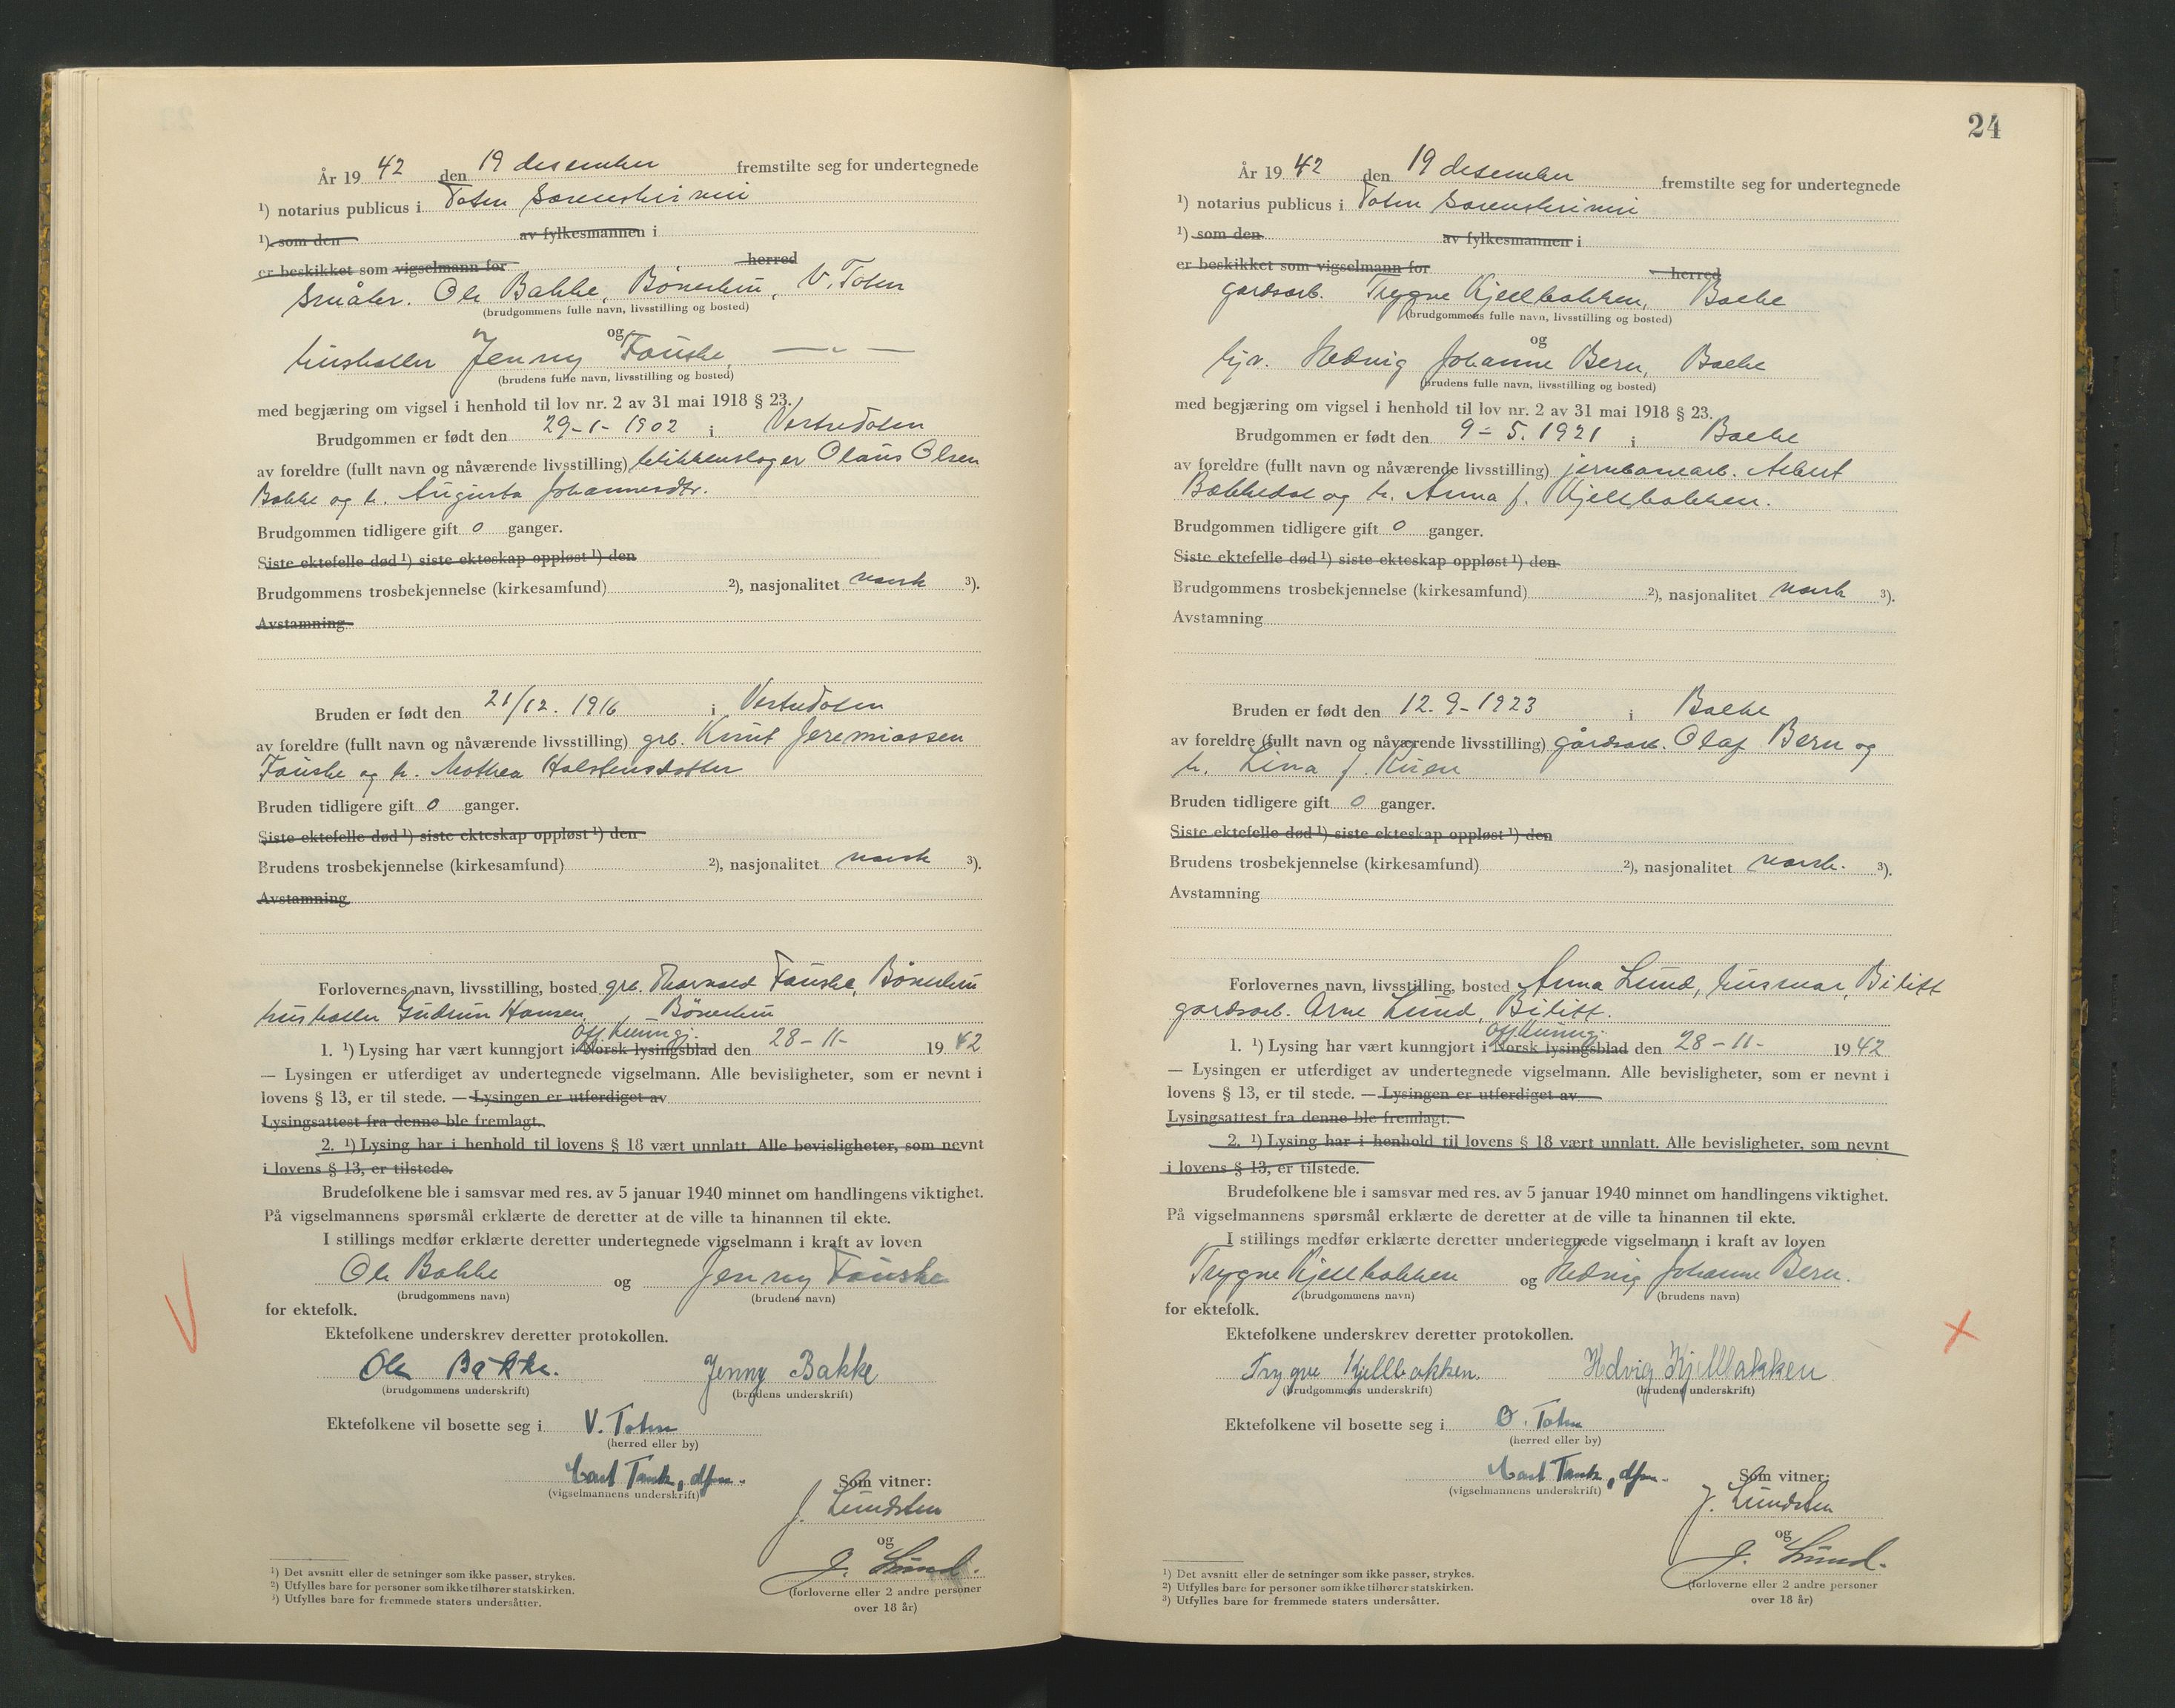 År 19 42 den 19 desember fremstilte seg for undertegnede
¹) notarius publicus i Toten Sorenskriveri
¹) som den av fylkesmannen i
er beskikket som vigselmann for herred
Småbr. Ole Bakke, V. Toten
(brudgommens fulle navn, livsstilling og bosted)
og
husholder Jenny Fauske, — „ —
(brudens fulle navn, livsstilling og bosted)
med begjæring om vigsel i henhold til lov nr. 2 av 31 mai 1918 § 23.
Brudgommen er født den 29-1-1902 i Vestretoten
av foreldre (fullt navn og nåværende livsstilling) blikkenslager Olaus Olsen
Bakke og h. Augusta Johannesdtr.
Brudgommen tidligere gift 0 ganger.
Siste ektefelle død ¹) siste ekteskap oppløst ¹) den
Brudgommens trosbekjennelse (kirkesamfund) ²), nasjonalitet norsk ³).
Avstamning
Bruden er født den 21/12. 1916 i Vestretoten
av foreldre (fullt navn og nåværende livsstilling) grb. Knut Jeremiassen
Fauske og h. Mathea Halstensdatter
Bruden tidligere gift 0 ganger.
Siste ektefelle død ¹) siste ekteskap oppløst ¹) den
Brudens trosbekjennelse (kirkesamfund) ²), nasjonalitet norsk ³).
Avstamning
Forlovernes navn, livsstilling, bosted grb. Thorvald Fauske,
husholder Gudrun Hansen,
off. kunngj.
1. ¹) Lysing har vært kunngjort i Norsk lysingsblad den 28-11- 19 42
— Lysingen er utferdiget av undertegnede vigselmann. Alle bevisligheter, som er nevnt i
lovens § 13, er til stede. — Lysingen er utferdiget av
Lysingsattest fra denne ble fremlagt.
2. ¹) Lysing har i henhold til lovens § 18 vært unnlatt. Alle bevisligheter, som nevnt
i lovens § 13, er tilstede.
Brudefolkene ble i samsvar med res. av 5 januar 1940 minnet om handlingens viktighet.
På vigselmannens spørsmål erklærte de deretter at de ville ta hinannen til ekte.
I stillings medfør erklærte deretter undertegnede vigselmann i kraft av loven
Ole Bakke og Jenny Fauske
(brudgommens navn) (brudens navn)
for ektefolk.
Ektefolkene underskrev deretter protokollen.
Ole Bakke. Jenny Bakke
(brudgommens underskrift) (brudens underskrift)
Ektefolkene vil bosette seg i V. Toten
(herred eller by)
Carl Tank, dfm. Som vitner:
(vigselmannens underskrift)
J. Lundsten
og
J. Lund.
(forloverne eller 2 andre personer
over 18 år)
¹) Det avsnitt eller de setninger som ikke passer, strykes.
²) Utfylles bare for personer som ikke tilhører statskirken.
³) Utfylles bare for fremmede staters undersåtter.
24
År 19 42 den 19 desember fremstilte seg for undertegnede
¹) notarius publicus i Toten Sorenskriveri
¹) som den av fylkesmannen i
er beskikket som vigselmann for herred
gardsarb. Trygve Kjellbakken, Balke
(brudgommens fulle navn, livsstilling og bosted)
og
hjv. Hedvig Johanne Bern, Balke
(brudens fulle navn, livsstilling og bosted)
med begjæring om vigsel i henhold til lov nr. 2 av 31 mai 1918 § 23.
Brudgommen er født den 9-5. 1921 i Balke
av foreldre (fullt navn og nåværende livsstilling) jernbanearb. Albert
Bakkedal og h. Anna f. Kjellbakken.
Brudgommen tidligere gift 0 ganger.
Siste ektefelle død ¹) siste ekteskap oppløst ¹) den
Brudgommens trosbekjennelse (kirkesamfund) ²), nasjonalitet norsk ³).
Avstamning
Bruden er født den 12. 9-1923 i Balke
av foreldre (fullt navn og nåværende livsstilling) gårdsarb. Olaf Bern og
h. Lina f.
Bruden tidligere gift 0 ganger.
Siste ektefelle død ¹) siste ekteskap oppløst ¹) den
Brudens trosbekjennelse (kirkesamfund) ²), nasjonalitet norsk. ³).
Avstamning
Forlovernes navn, livsstilling, bosted Anna Lund, husmor, Bilitt
gardsarb. Arne Lund, Bilitt.
off. kunngj.
1. ¹) Lysing har vært kunngjort i Norsk lysingsblad den 28-11- 19 42
— Lysingen er utferdiget av undertegnede vigselmann. Alle bevisligheter, som er nevnt i
lovens § 13, er til stede. — Lysingen er utferdiget av
Lysingsattest fra denne ble fremlagt.
2. ¹) Lysing har i henhold til lovens § 18 vært unnlatt. Alle bevisligheter, som nevnt
i lovens § 13, er tilstede.
Brudefolkene ble i samsvar med res. av 5 januar 1940 minnet om handlingens viktighet.
På vigselmannens spørsmål erklærte de deretter at de ville ta hinannen til ekte.
I stillings medfør erklærte deretter undertegnede vigselmann i kraft av loven
Trygve Kjellbakken og Hedvig Johanne Bern.
(brudgommens navn) (brudens navn)
for ektefolk.
Ektefolkene underskrev deretter protokollen.
Trygve Kjellbakken. Hedvig Kjellbakken
(brudgommens underskrift) (brudens underskrift)
Ektefolkene vil bosette seg i Ø. Toten
(herred eller by)
Carl Tank, dfm. Som vitner:
(vigselmannens underskrift)
J. Lundsten
og
J. Lund.
(forloverne eller 2 andre personer
over 18 år)
¹) Det avsnitt eller de setninger som ikke passer, strykes.
²) Utfylles bare for personer som ikke tilhører statskirken.
³) Utfylles bare for fremmede staters undersåtter.